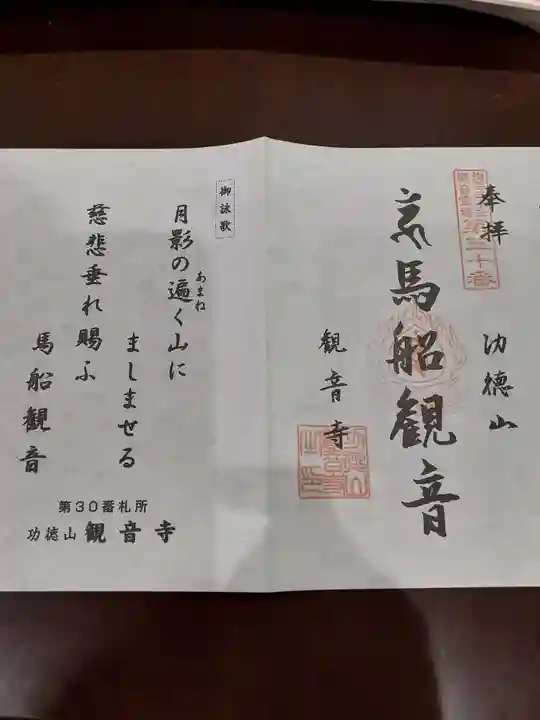 奉拝
第三十番
功徳山
馬船観音
観音寺
御詠歌
月影の遍く山に
あまね
ましませる
慈悲垂れ賜ふ
馬船観音
第30番札所
功徳山 観音寺